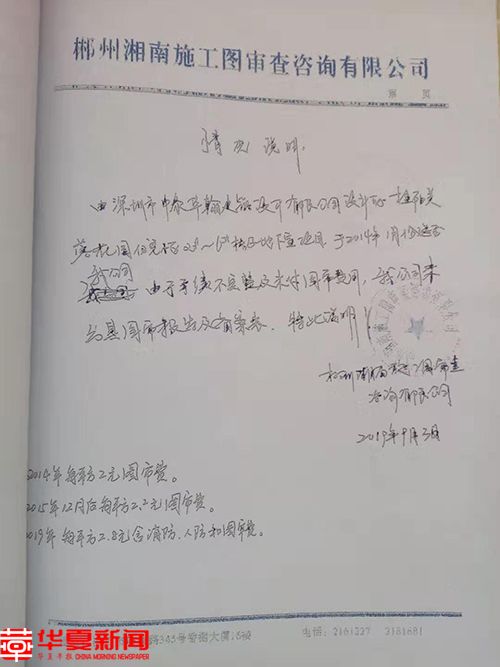 郴州湘南施工图审查咨询有限公司
第 页
情况说明
由深圳市中泰华翰建筑设计有限公司设计的
落机国住宅小区 栋及地下室项目 于2014年 月份送至
我公司
由于手续不完整及未付图审费用,我公司未
出具图审报告及备案表。特此说明!
郴州湘南施工图审查
咨询有限公司
2019年9月3日
2014年每平方2元图审费。
2015年12月后每平方2.2元图审费。
2019年每平方2.8元含消防、人防和图审费。
路345号 大厦16楼 电话:2161227 2181681
华夏新闻
华夏早报 CHINA MORNING NEWSPAPER